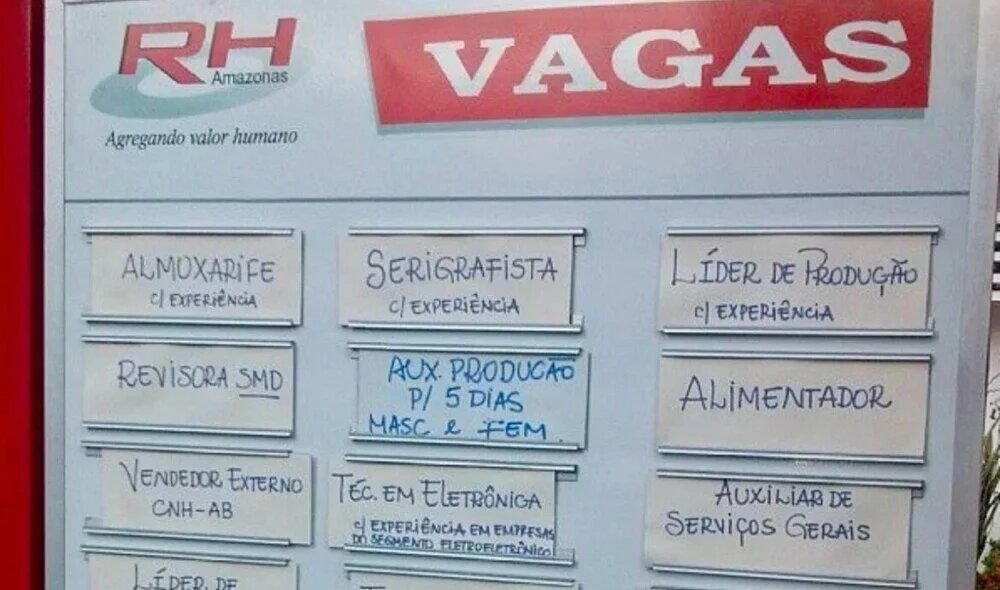 RH
Amazonas
Agregando valor humano
VAGAS
ALMOXARIFE
C/ EXPERIÊNCIA
SERIGRAFISTA
C/ EXPERIÊNCIA
LÍDER DE PRODUÇÃO
C/ EXPERIÊNCIA
REVISORA SMD
AUX. PRODUCÃO
P/ 5 DIAS
MASC e FEM.
ALIMENTADOR
VENDEDOR EXTERNO
CNH-AB
TÉC. EM ELETRÔNICA
C/ EXPERIÊNCIA EM EMPRESAS
DO SEGMENTO ELETROELETRÔNICO
AUXILIAR DE
SERVIÇOS GERAIS
LÍDER DE